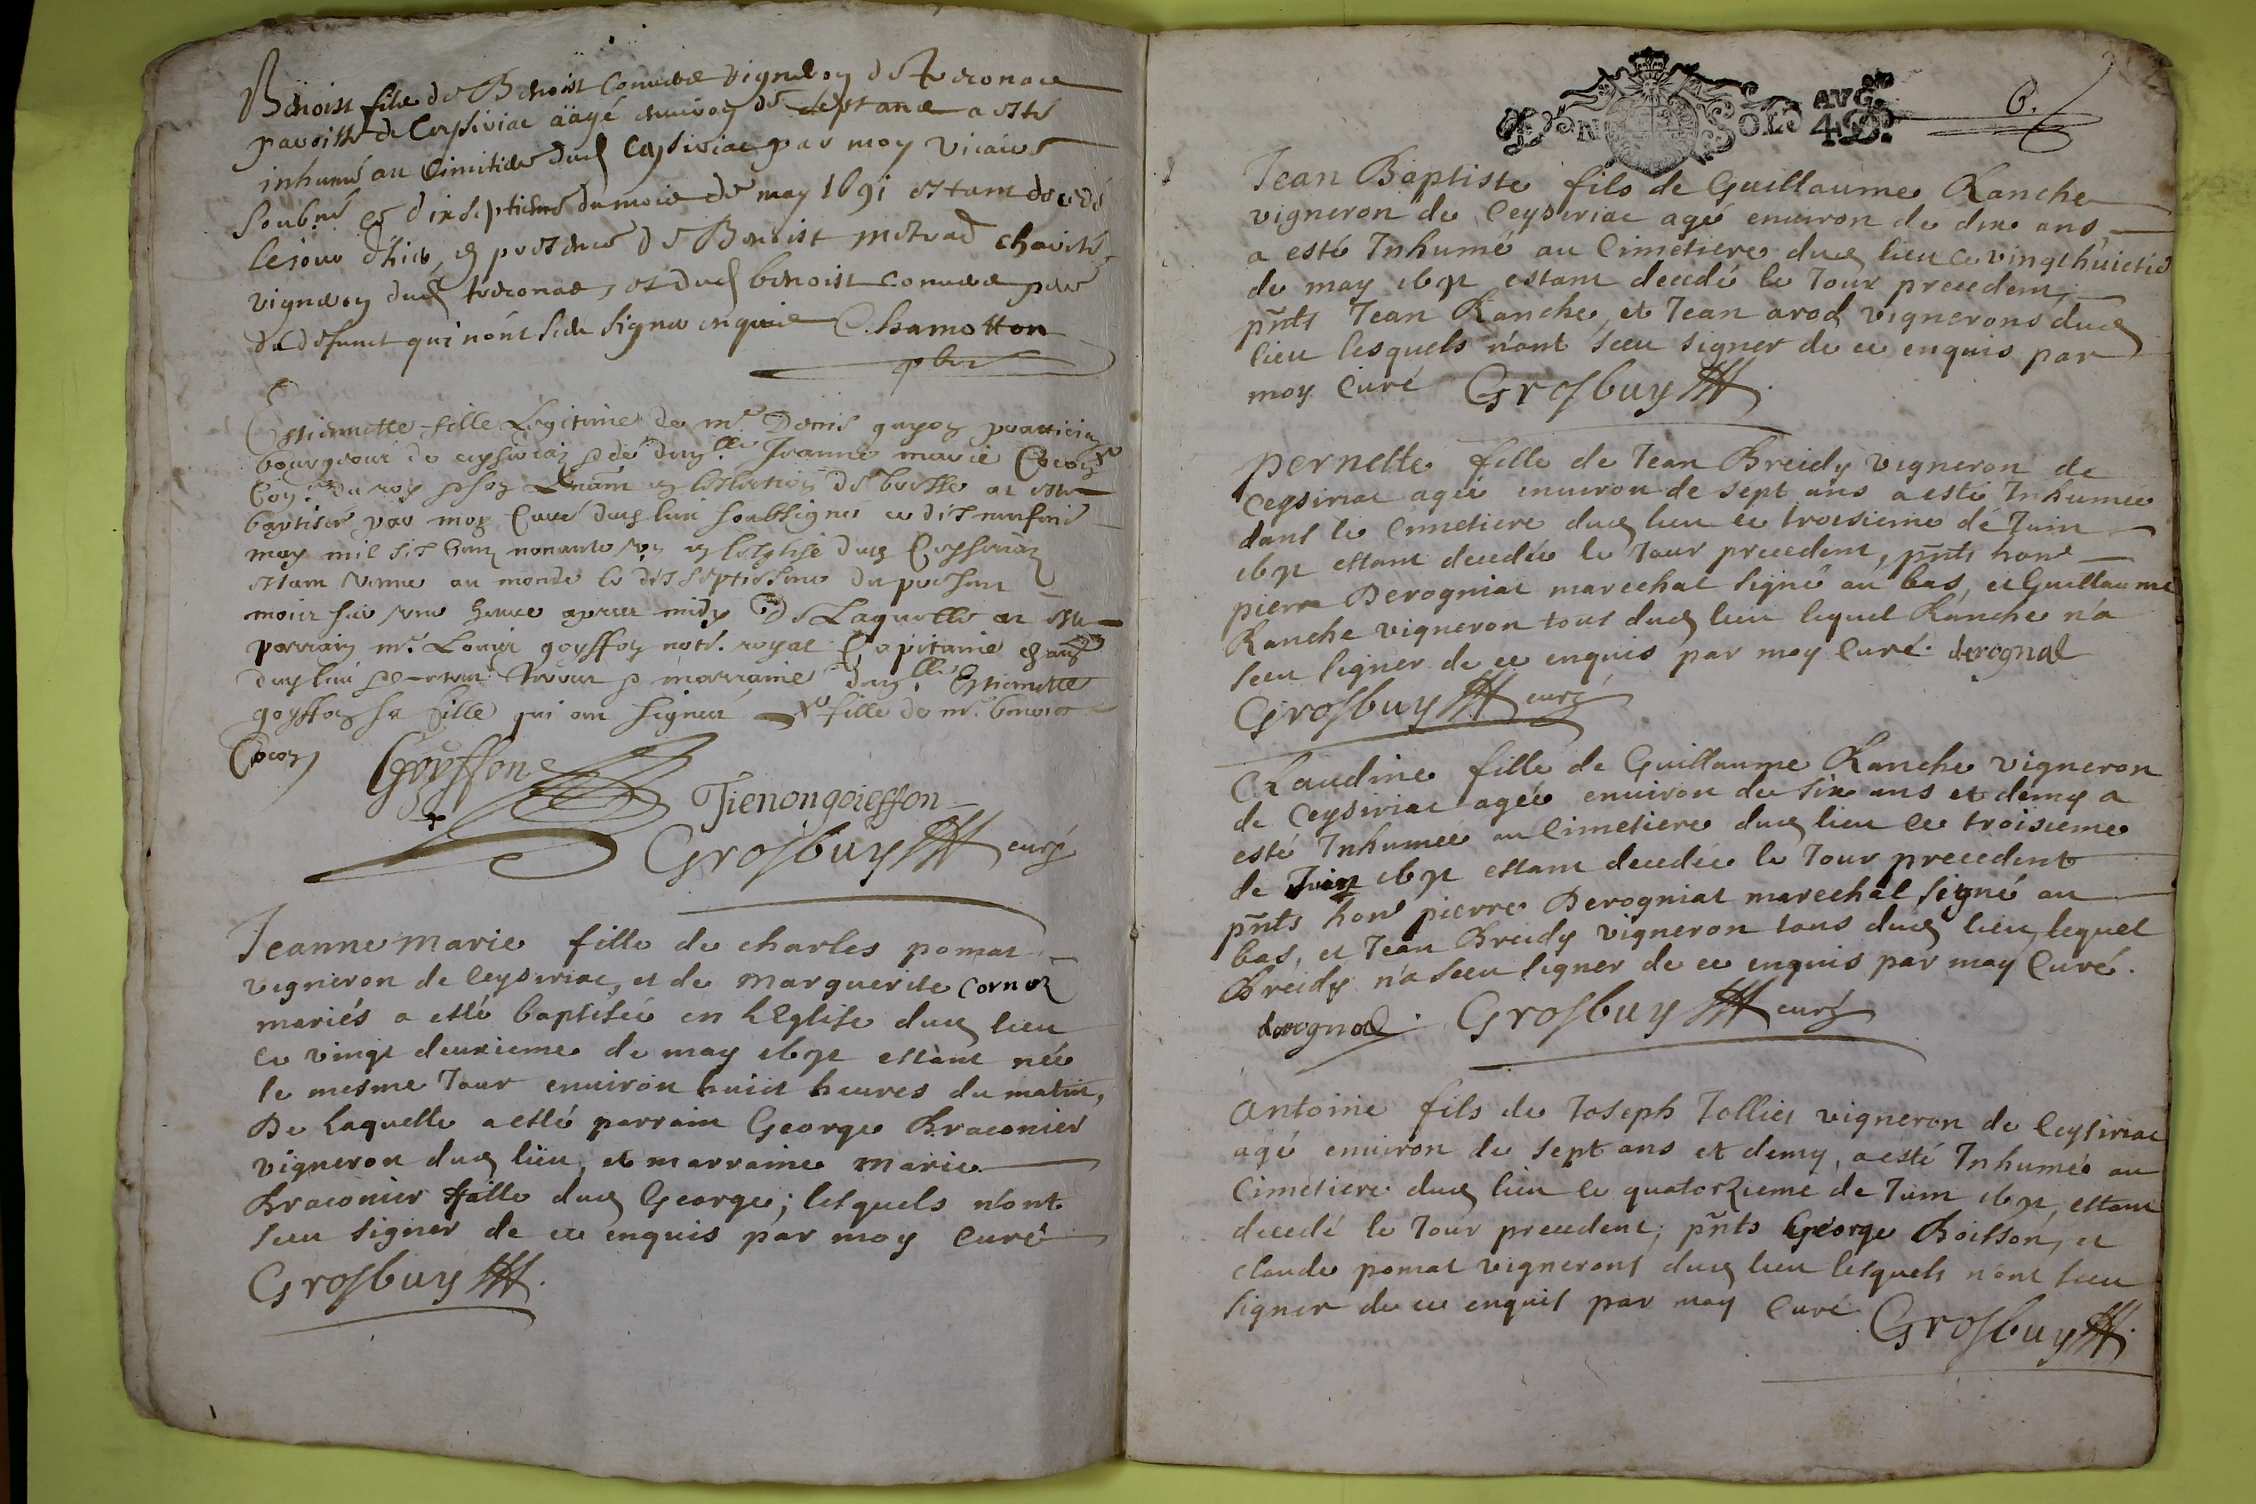 Benoist fils de Benoist Convers vigneron de
parroisse de Ceysiriac aagé environ de sept ans a esté
inhumé au Cimitiere dud Ceysiriac par moy vicaire
soub.né ce dixseptiesme du mois de may 1691 estant decedé
le jour d'hier, en presence de Benoist
vigneron dud et dud benoist convers pere
du defunct qui n'ont sceu signer enquis C. hamotton
pbre
Estiennette fille Legitime de mr. Denis guyon pratticien
bourgeois de ceysiria & de dam.lle Jeanne marie Cocon
Con.er du roy
baptisée par moy Curé dud lieu soubsigné ce
may mil six cent nonante un en l'esglise dud Ceysiria
estant venue au monde le dixseptiesme du present
mois sur une heure apres midy De Laquelle a esté
parrain mr. Louis goyffon notr. royal Capitaine
dud lieu & marraine dam.lle Estiennette
goyffon sa fille qui ont signés fille de mr. benoist
Cocon Goyffon
Tienon goieffon
Grosbuy curé
Jeanne marie fille de charles pomat
vigneron de Ceysiriac, et de marguerite cornoz
mariés a esté baptisée en l'Eglise dud lieu
ce vingt deuxieme de may 1691 estant née
le mesme Jour environ huict heures du matin,
De laquelle a esté parrain George Braconier
vigneron dud lieu, et marraine marie
Braconier fille dud George; lesquels n'ont
sceu signer de ce enquis par moy Curé
Grosbuy
GEN SOLS AVG. 49
6.
Jean Baptiste fils de Guillaume Ranche
vigneron de Ceysiriac agé environ de dix ans
a esté Inhumé au Cimetiere dud lieu ce vingthuictie
de may 1691 estant decedé le Jour precedent,
pnts Jean Ranche, et Jean arod vignerons dud
lieu lesquels n'ont sceu signer de ce enquis par
moy Curé Grosbuy
pernette fille de Jean Breidy vigneron de
Ceysiriac agée environ de sept ans a esté Inhumée
dans le Cimetiere dud lieu ce troisieme de Juin
1691 estant decedée le Jour precedent, pnts hone
pierre Derogniat marechal signé au bas, et Guillaume
Ranche vigneron tous dud lieu lequel Ranche n'a
sceu signer de ce enquis par moy Curé. derognat
Grosbuy curé
Claudine fille de Guillaume Ranche vigneron
de Ceysiriac agée environ de six ans et demy a
esté Inhumée au Cimetiere dud lieu ce troisieme
de Juin 1691 estant decedée le Jour precedent
pnts hone pierre Derogniat marechal signé au
bas, et Jean Breidy vigneron tous dud lieu, lequel
Breidy n'a sceu signer de ce enquis par moy Curé.
derognat. Grosbuy curé
Antoine fils de Joseph Tollier vigneron de Ceysiriac
agé environ de sept ans et demy, a esté Inhumé au
Cimetiere dud lieu ce quatorzieme de Juin 1691, estant
decedé le Jour precedent; pnts George Boisson, et
claude pomat vignerons dud lieu lesquels n'ont sceu
signer de ce enquis par moy Curé Grosbuy